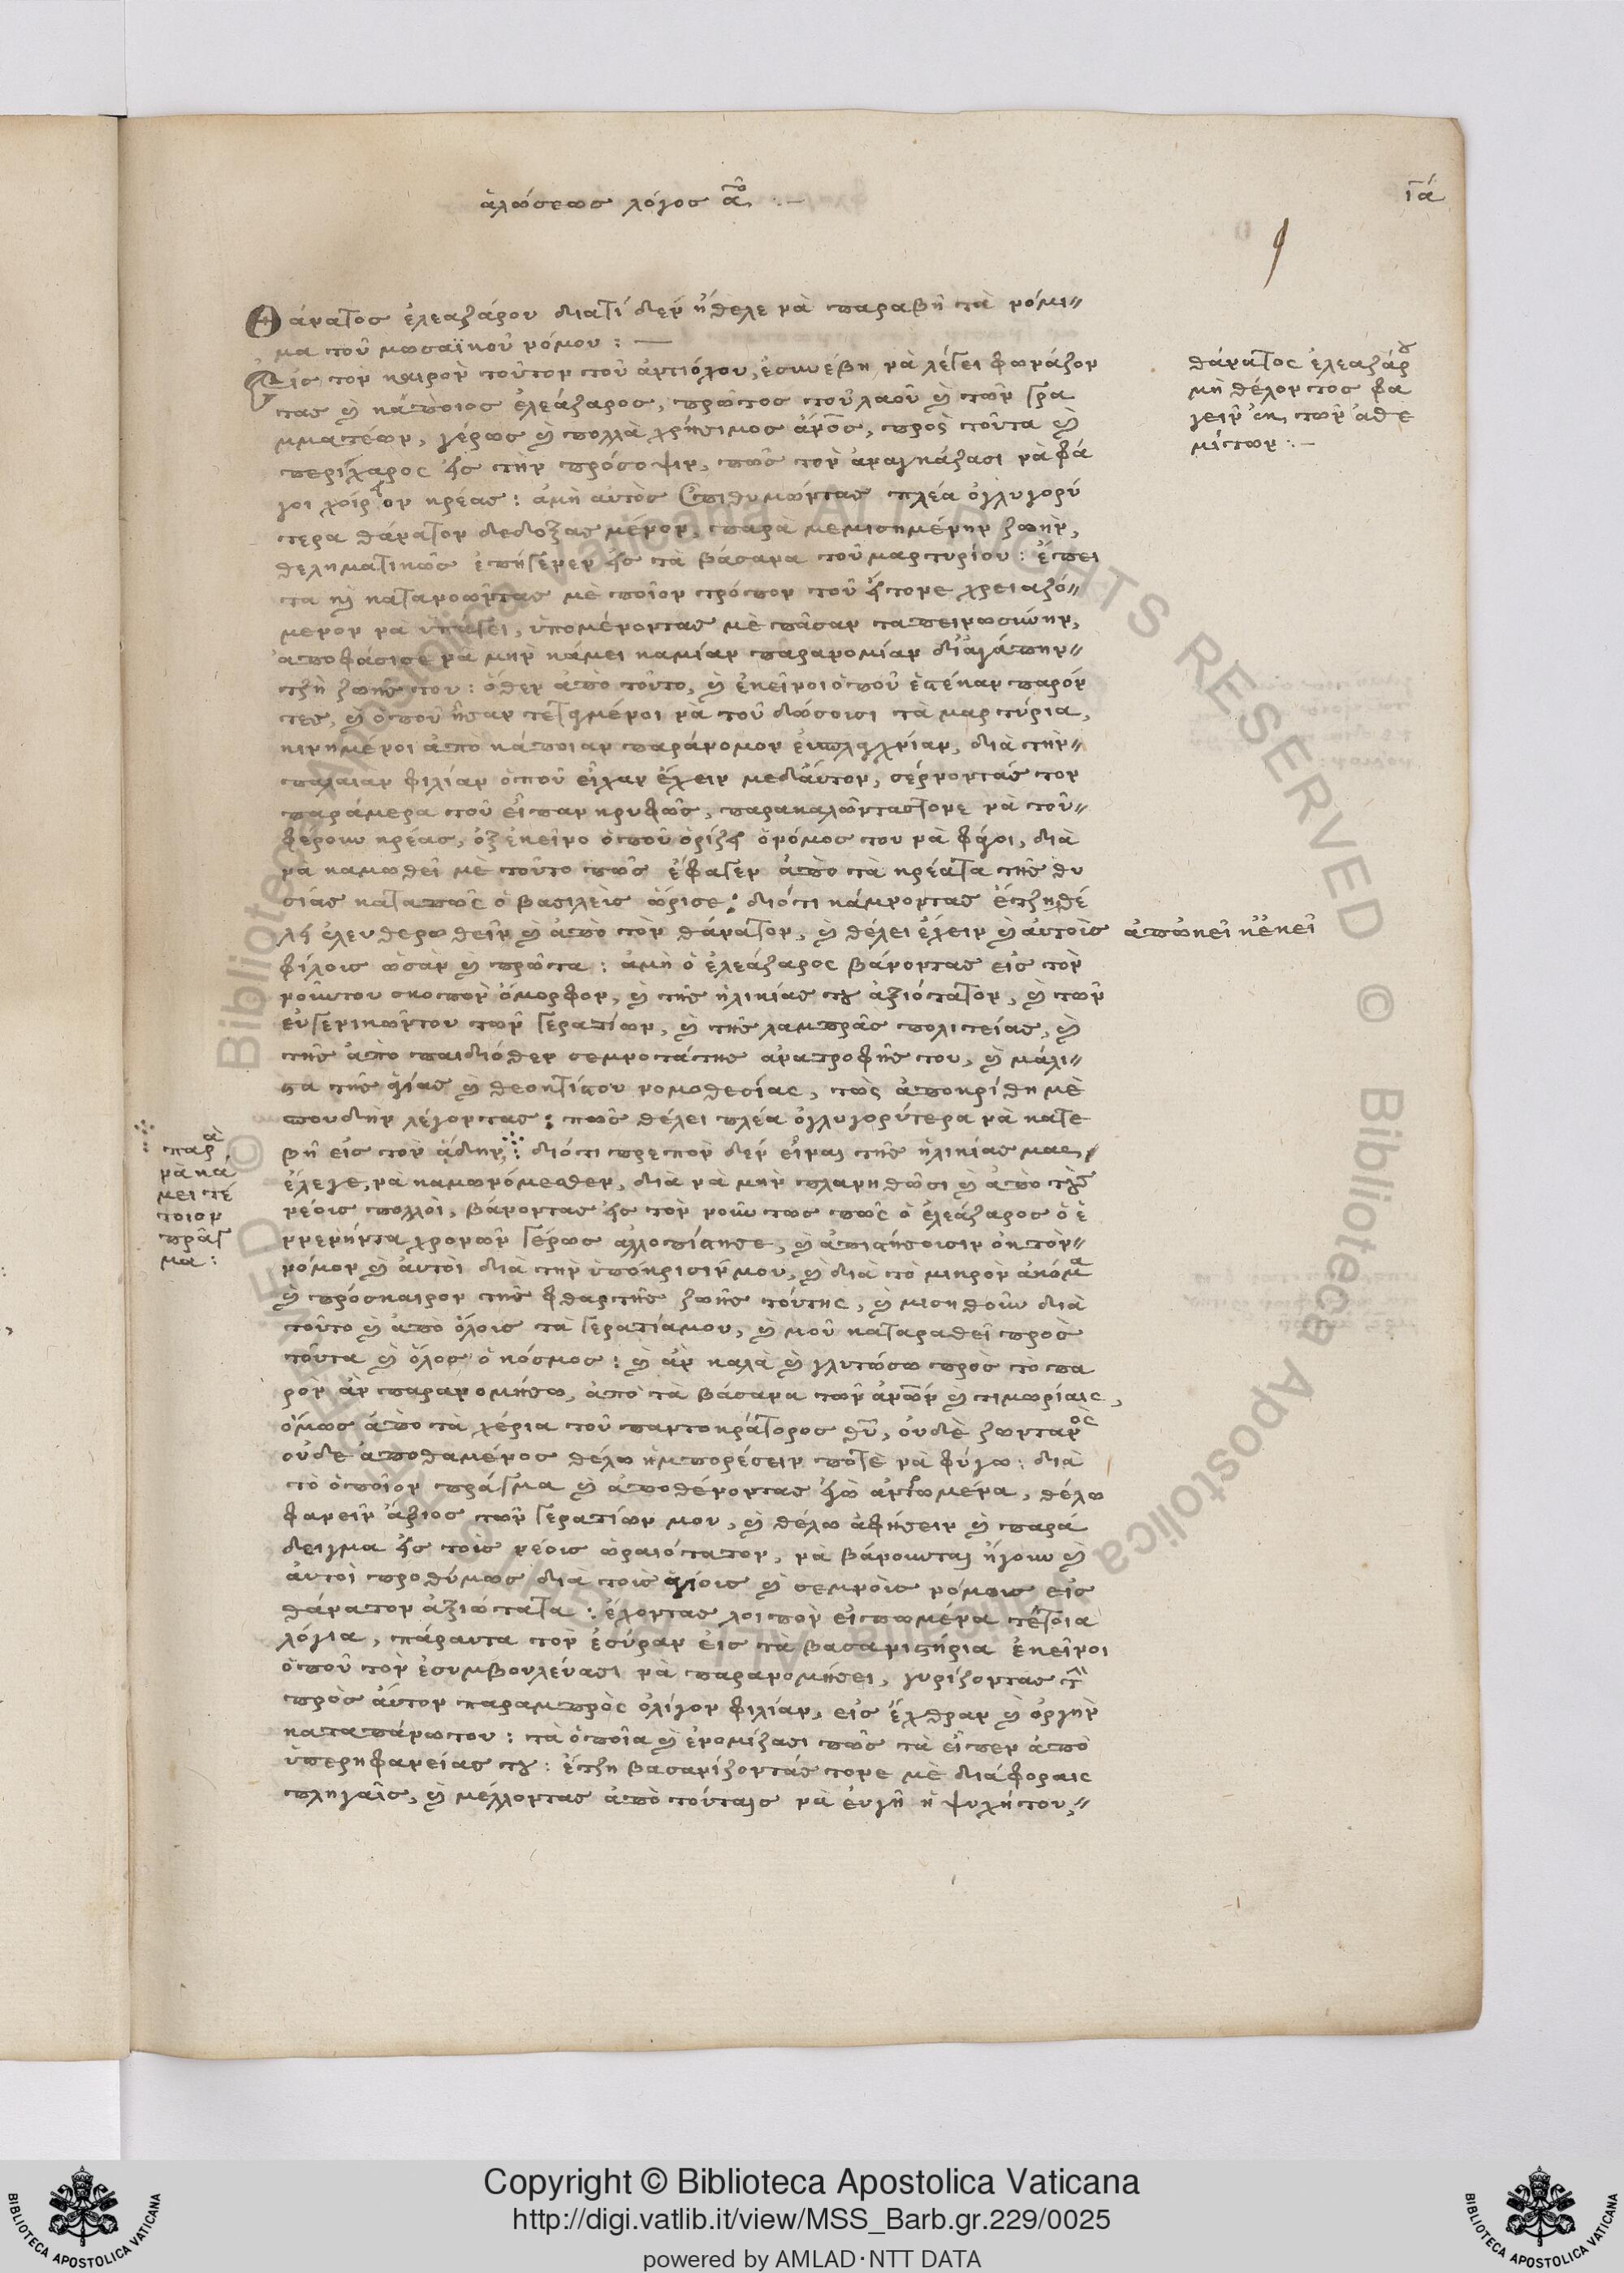 ἁλώσεως λόγος ᾶον :–
ια
9
Θάνατος ἐλεαζάρου διατί δὲν ἤθελε νὰ παραβῆ τὰ νόμι=
μα τοῦ μωσαϊκοῦ νόμου : —
Εἰς τὸν καιρὸν τοῦτον τοῦ ἀντιόχου, ἐσυνέβη νὰ λέγει φωνάζον
τας καὶ κάποιος ἐλεάζαρος, πρῶτος τοῦ λαοῦ καὶ τῶν γρα
μματέων, γέρως καὶ πολλὰ χρήσιμος ἀνος, πρὸς τοῦτα καὶ
περίχαρος εἰς τὴν πρόσοψιν, πῶς τὸν ἀναγκάζασι νὰ φά
γοι χοίρειον κρέας : ἀμὴ αὐτὸς ἐπιθυμῶντας πλέα ὀγλυγορύ
τερα θάνατον δεδοξασμένον, παρὰ μεμισημένην ζωὴν,
θεληματικῶς ἐπήγενεν εἰς τὰ βάσανα τοῦ μαρτυρίου : ἔπει
τα καὶ κατανοῶντας μὲ ποῖον τρόπον τοῦ ἤτονε χρειαζό=
μενον νὰ ὑπάγει, ὑπομένοντας μὲ πᾶσαν ταπεινωσύνην,
ἀποφάσισε νὰ μὴν κάμει καμίαν παρανομίαν διἀγάπην=
τζῆ ζωῆς του : ὅθεν ἀπὸ τοῦτο, καὶ ἐκεῖνοι ὁποῦ ἐστέκαν παρόν
τες, καὶ ὁποῦ ἦσαν τεταγμένοι νὰ τοῦ δώσοισι τὰ μαρτύρια,
κινημένοι ἀπὸ κάποιαν παράνομον εὐσπλαχνίαν, διὰ τὴν=
παλαιὰν φιλίαν ὁποῦ εἶχαν ἔχειν μεδαύτον, σέρνοντάς τον
παράμερα τοῦ εἶπαν κρυφῶς, παρακαλῶντας τονε νὰ τοῦ=
φέρουν κρέας, ὀξ ἐκεῖνο ὁποῦ ὁρίζει ὁ νόμος του νὰ φάγοι, διὰ
νὰ καμωθεῖ μὲ τοῦτο πῶς ἔφαγεν ἀπὸ τὰ κρέατα τῆς θυ
σίας καταπῶς ὁ βασιλεὺς ὥρισε : διότι κάμνοντας ἔτζη θέ
λει ἐλευθερωθεῖν καὶ ἀπὸ τὸν θάνατον, καὶ θέλει ἔχειν καὶ αὐτοὺς ἀπῶκεῖ κἔκεῖ
φίλοις ὡσὰν καὶ πρῶτα : ἀμὴ ὁ ἐλεάζαρος βάνοντας εἰς τὸν
νοῦντου σκοπὸν ὄμορφον, καὶ τῆς ἡλικίας του ἀξιότατον, καὶ τῶν
εὐγενικῶντου τῶν γερατίων, καὶ τῆς λαμπρᾶς πολιτείας, καὶ
τῆς ἀπὸ παιδιόθεν σεμνοτάτης ἀνατροφῆς του, καὶ μάλι=
στα τῆς ἁγίας καὶ θεοκτίστου νομοθεσίας, τὼς ἀποκρίθη μὲ
σπουδὴν λέγοντας : πῶς θέλει πλέα ὀγλυγορύτερα νὰ κατε
βῆ εἰς τὸν ἅδην, ⁘ διότι πρεπὸν δὲν εἶναι τῆς ἡλικίας μας,
ἔλεγε, νὰ καμωνόμεσθεν, διὰ νὰ μὴν πλανηθῶσι καὶ ἀπὸ τοὺς
νέοις πολλοὶ, βάνοντας εἰς τὸν νοῦν τως πῶς ὁ ἐλεάζαρος ὁ ἐ
ννενήντα χρονῶν γέρως ἀλλοπίστησε, καὶ ἀπιστήσοισιν ὀκ τὸν=
νόμον καὶ αὐτοὶ διὰ τὴν ὑπόκρισίν μου, καὶ διὰ τὸ μικρὸν ἀκόμα
καὶ πρόσκαιρον τῆς φθαρτῆς ζωῆς τούτης, καὶ μισηθοῦν διὰ
τοῦτο καὶ ἀπὸ ὅλοις τὰ γερατίαμου, καὶ μοῦ καταραθεῖ πρὸς
τοῦτα καὶ ὅλος ὁ κόσμος : καὶ ἂν καλὰ καὶ γλυτώσω πρὸς τὸ πα
ρὸν ἂν παρανομήσω, ἀπὸ τὰ βάσανα τῶν ἀνων καὶ τιμωρίαις,
ὅμως ἀπὸ τὰ χέρια τοῦ παντοκράτορος θυ, οὐδὲ ζωντανὸς
οὐδὲ ἀποθαμένος θέλω ἠμπορέσειν ποτὲ νὰ φύγω : διὰ
τὸ ὁποῖον πράγμα καὶ ἀποθένοντας ἐγὼ ἀντρωμένα, θέλω
φανεῖν ἄξιος τῶν γερατίων μου, καὶ θέλω ἀφήσειν καὶ παρά
δειγμα εἰς τοὺς νέοις ὡραιότατον, νὰ βάνουνται ἤγουν καὶ
αὐτοὶ προθύμως διὰ τοὺς ἁγίοις καὶ σεμνοὺς νόμοις εἰς
θάνατον ἀξιώτατα : ἔχοντας λοιπὸν εἰπωμένα τέτοια
λόγια, πάραυτα τὸν ἐσύραν εἰς τὰ βασανιστήρια ἐκεῖνοι
ὁποῦ τὸν ἐσυμβουλεύασι νὰ παρανομήσει, γυρίζοντας τὴν
πρὸς αὐτὸν παραμπρὸς ὀλίγον φιλίαν, εἰς ἔχθραν καὶ ὀργὴν
καταπάνωτου : τὰ ὁποῖα καὶ ἐνομίζασι πῶς τὰ εἶπεν ἀπὸ
ὑπερηφανείας του : ἔτζη βασανίζοντάς τονε μὲ διάφοραις
πληγαῖς, καὶ μέλλοντας ἀπὸ τούταις νὰ εὐγῆ ἡ ψυχήτου,=
θάνατος ἐλεαζάρου
μὴ θέλοντος φα
γεῖν ἐκ τῶν ἀθε
μίτων :–
⁘ παρὰ
νὰ κά
μει τέ
τοιον
πρᾶγ
μα :
Copyright © Biblioteca Apostolica Vaticana
http://digi.vatlib.it/view/MSS_Barb.gr.229/0025
powered by AMLAD·NTT DATA
BIBLIOTECA APOSTOLICA VATICANA
BIBLIOTECA APOSTOLICA VATICANA